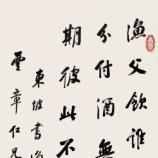 漁父飲誰
分付酒無
期彼此不
東坡書漁
雲章仁兄